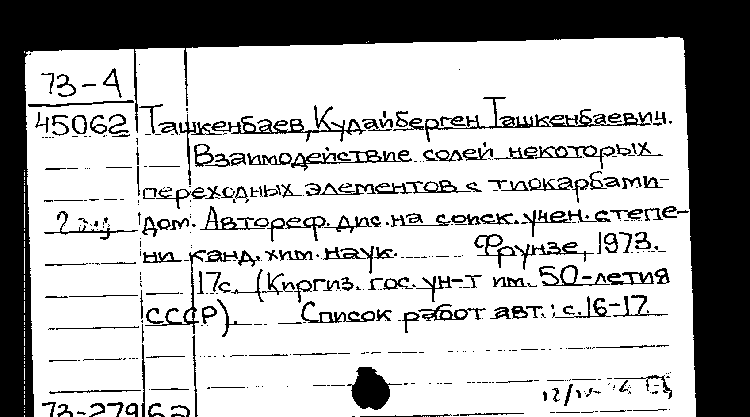 73-4
45062
Ташкенбаев, Кудайберген Ташкенбаевич.
Взаимодействие солей некоторых
переходных элементов с тиокарбами-
дом. Автореф. дис. на соиск. учен. степе-
ни канд. хим. наук. Фрунзе, 1973.
17с. (Киргиз. гос. ун-т им. 50-летия
СССР). Список работ авт.: с.16-17.